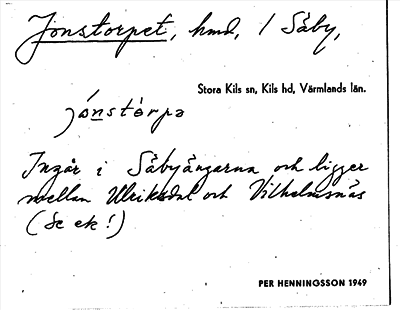 Jonstorpet, hmd, 1 Säby,
Stora Kils sn, Kils hd, Värmlands län.
jónstòrpa
Ingår i Säbyängarna och ligger
mellan Ulriksdal och Vilhelmsnäs
(Se ek!)
PER HENNINGSSON 1949